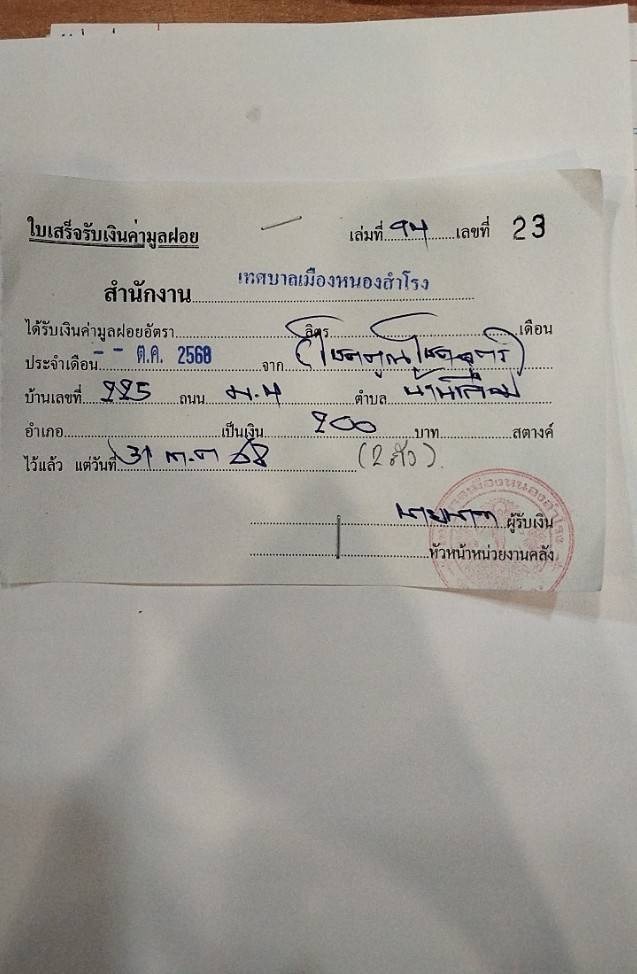 ใบเสร็จรับเงินค่ามูลฝอย เล่มที่ 94 เลขที่ 23
สำนักงาน เทศบาลเมืองหนองสำโรง
ได้รับเงินค่ามูลฝอยอัตรา ลิตร เดือน
ประจำเดือน -- ต.ค. 2568 จาก
บ้านเลขที่ 225 ถนน ม.4 ตำบล
อำเภอ เป็นเงิน 200 บาท สตางค์
ไว้แล้ว แต่วันที่ 31 ต.ค 68 (2 ถัง)
ผู้รับเงิน
หัวหน้าหน่วยงานคลัง